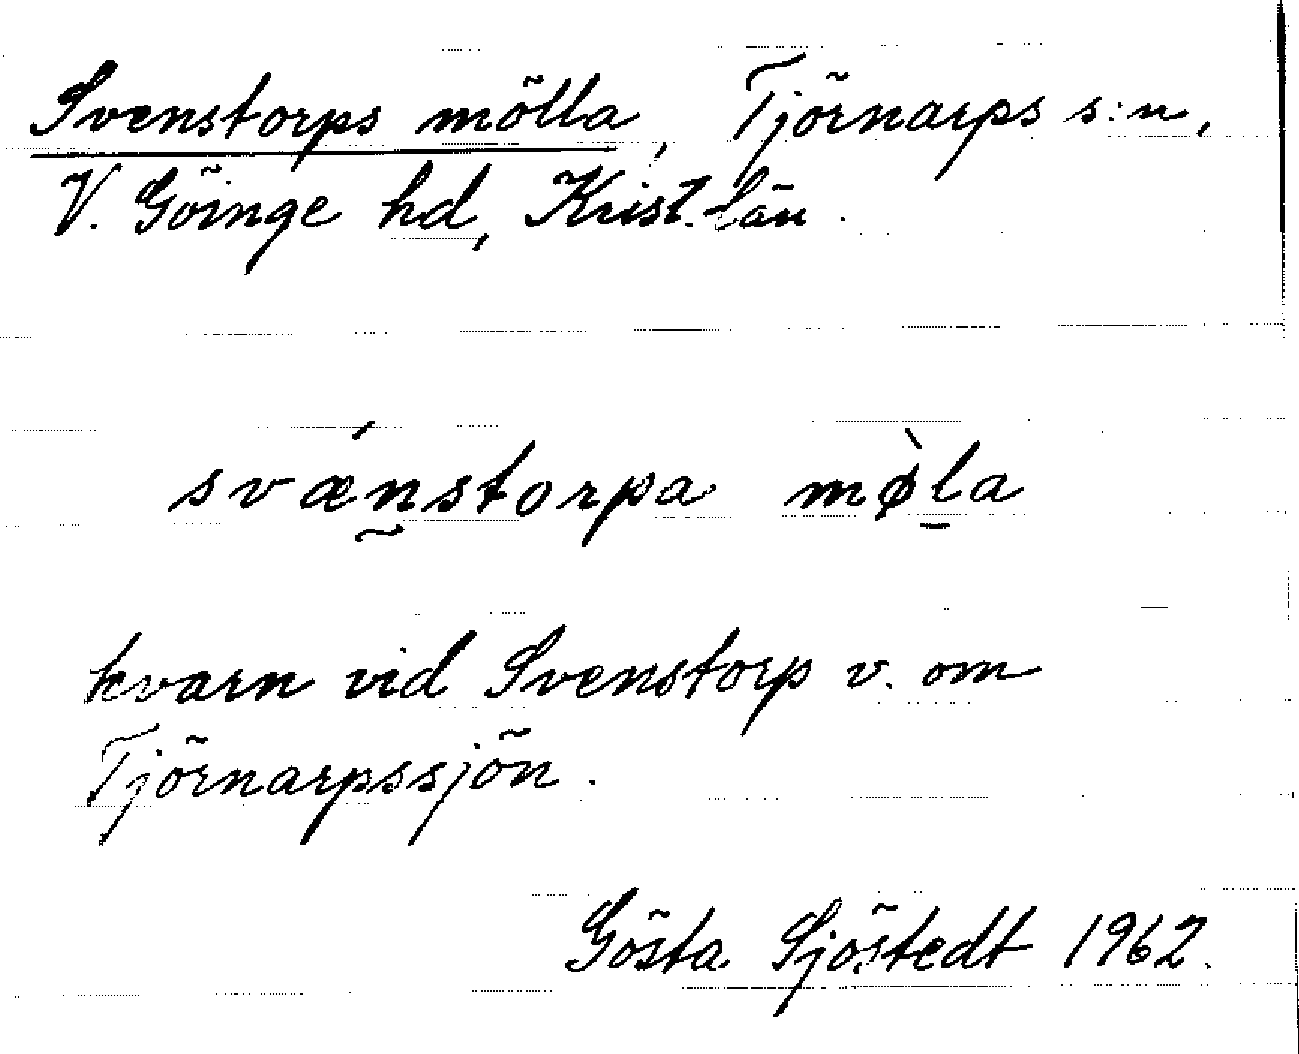 Svenstorps mölla, Tjörnarps s:n,
V. Göinge hd, Krist. län.
svǽn̰storpa mø̀l̲a
kvarn vid Svenstorp v. om
Tjörnarpssjön.
Gösta Sjöstedt 1962.